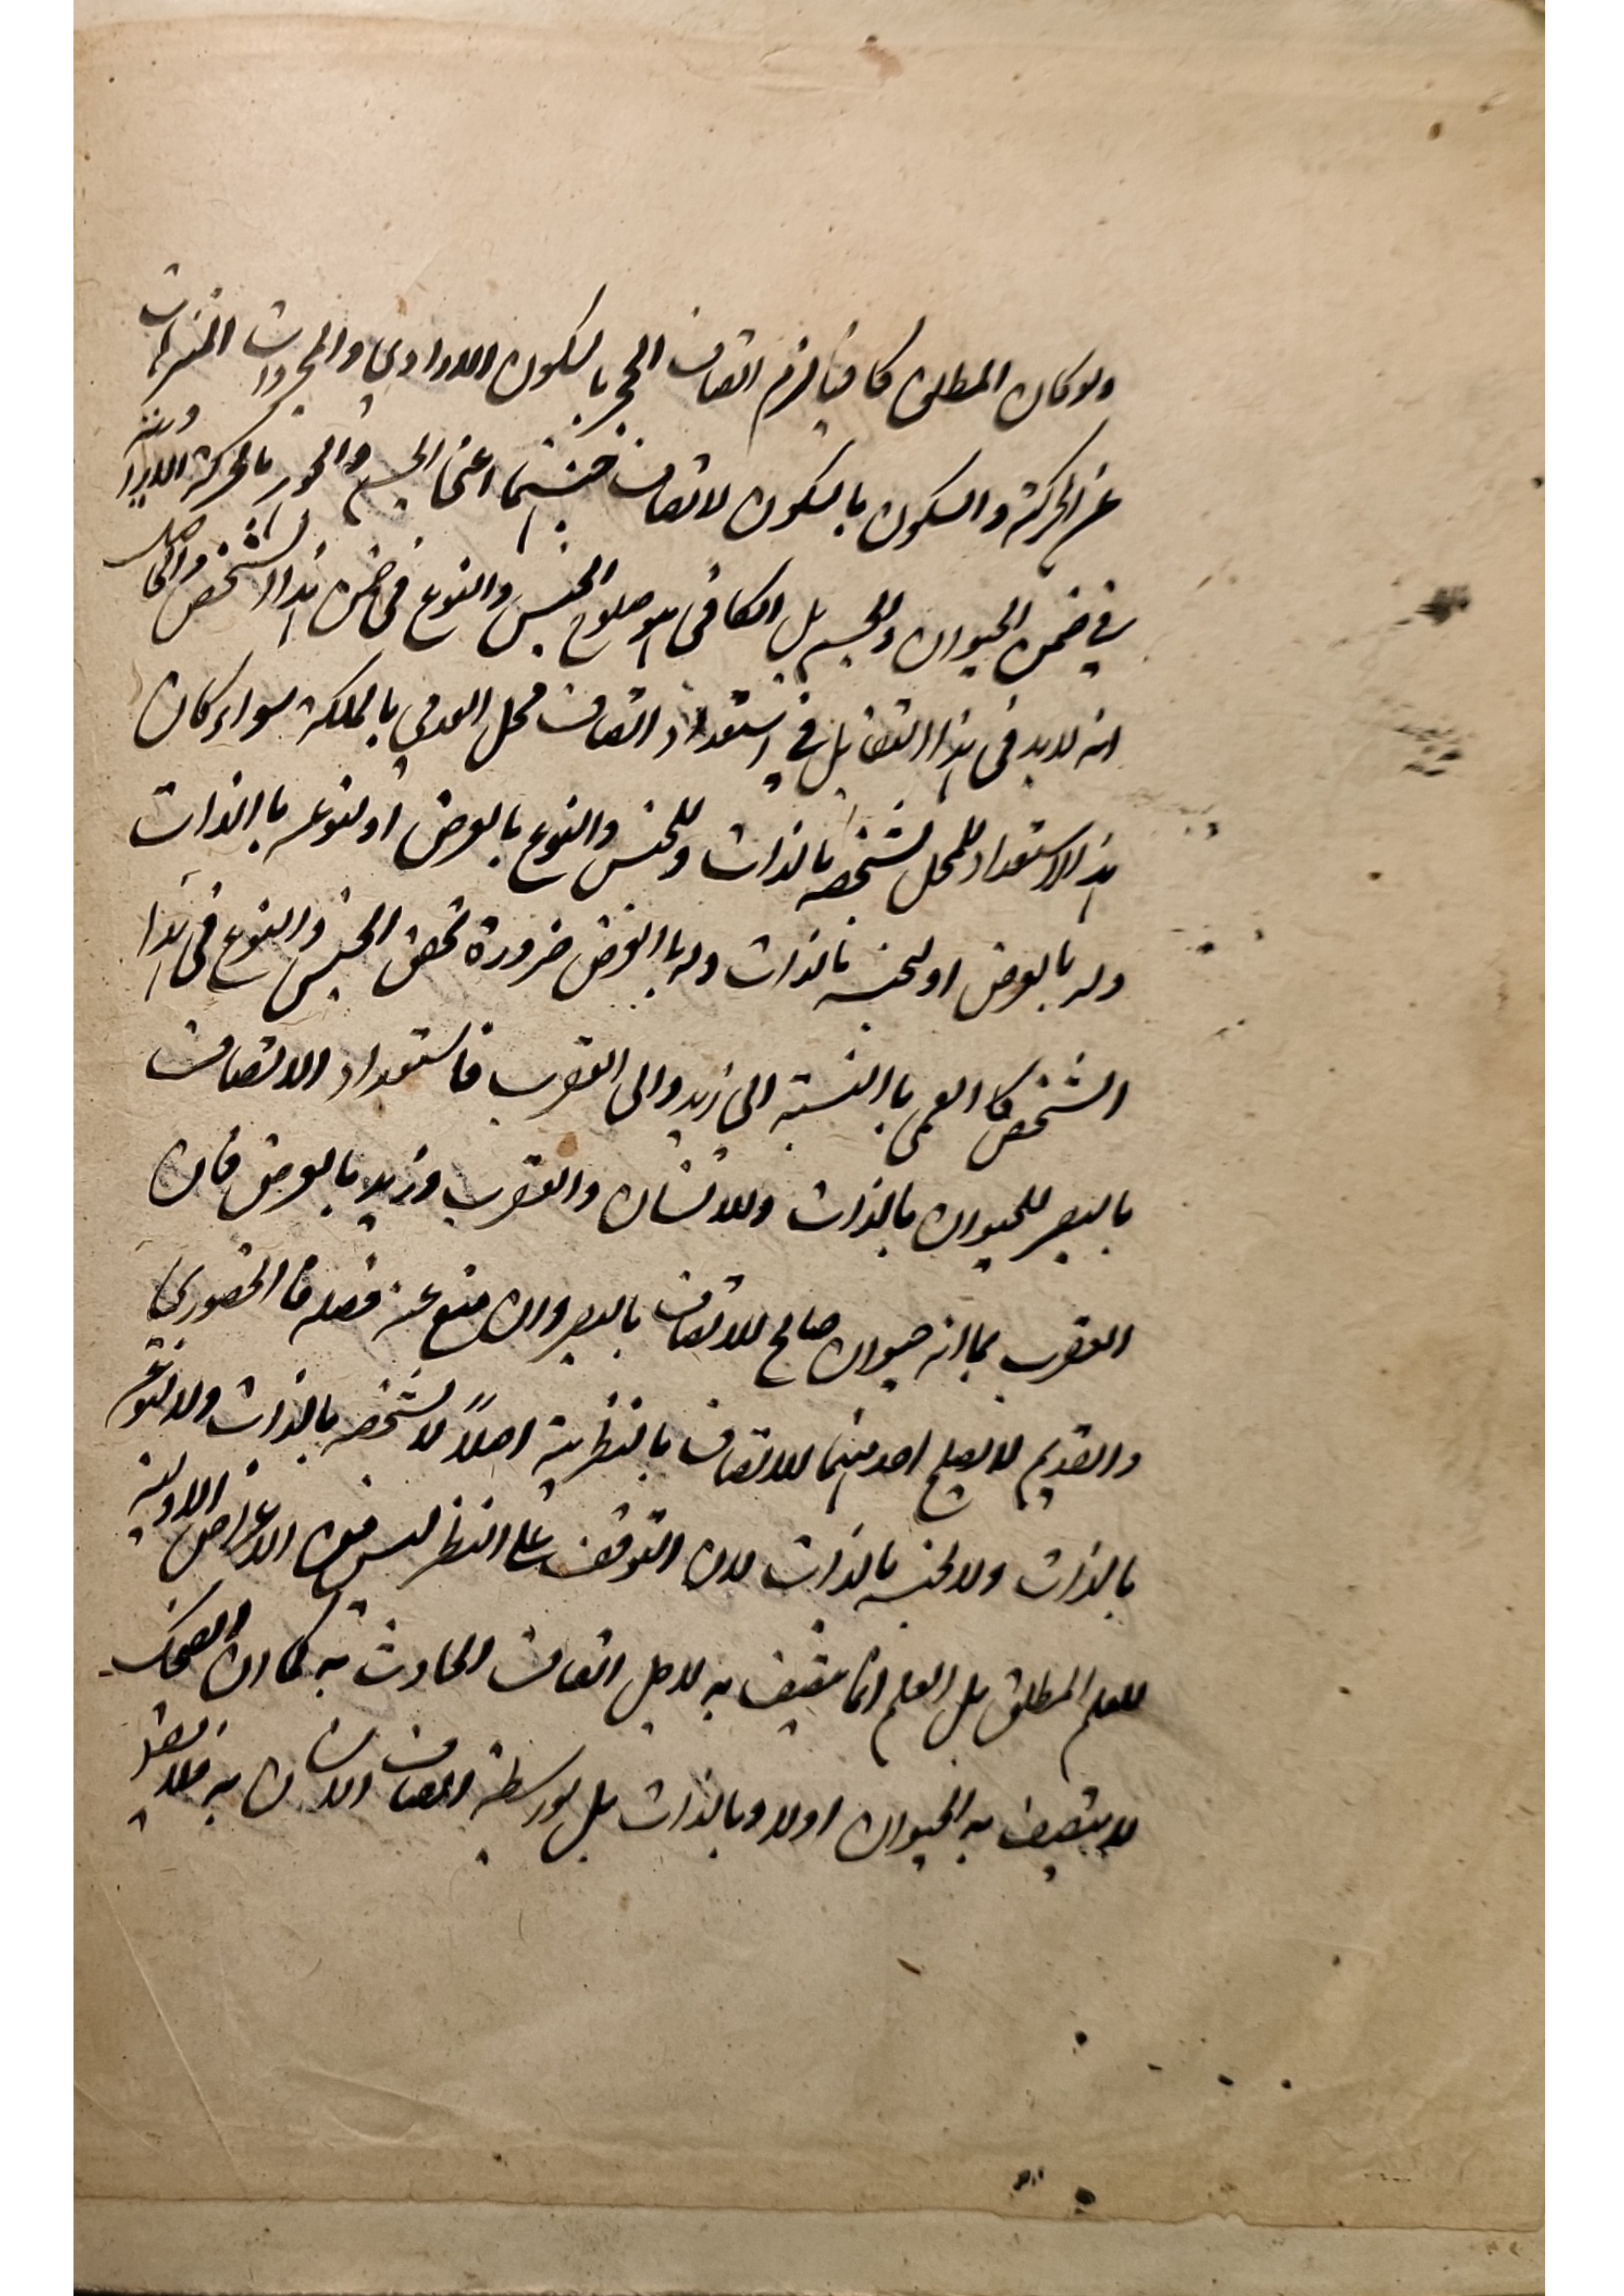 ولو كان المطلق كافيا لزم اتصاف الحجر بالسكون الارادي والمجردات المنزهات
عن الحركة والسكون بالسكون لاتصاف جنسهما اعنى الجسم والجوهر بالحركة الارادية
في ضمن الحيوان والجسم بل الكافى هو صلوح الجنس والنوع فى ضمن هذا الشخص والحاصل
انه لابد فى هذا التقابل في استعداد اتصاف محل العدمي بالملكة سواء كان
هذا الاستعداد للمحل بشخصه بالذات وللجنس والنوع بالعرض او لنوعه باالذات
وله بالعرض او لجنسه بالذات وله باالعرض ضرورة تحقق الجنس والنوع فى هذا
الشخص كالعمى باالنسبة الى زيد والى العقرب فاستعداد الاتصاف
بالبصر للحيوان بالذات وللانسان والعقرب وزيد بالعرض فان
العقرب بما انه حيوان صالح للاتصاف بالبصر وان منع عنه فصله فالحضوري
والقديم لا يصلح احد منهما للاتصاف بالنظرية اصلاً لا بشخصه بالذات ولا لنوعه
بالذات ولا لجنسه بالذات لان التوقف على النظر ليس من الاعراض الاولية
للعلم المطلق بل العلم انما يتصف به لاجل اتصاف الحادث به كما ان الضحك
لا يتصف به الحيوان اولا وبالذات بل بواسطة اتصاف الانسان به فلا